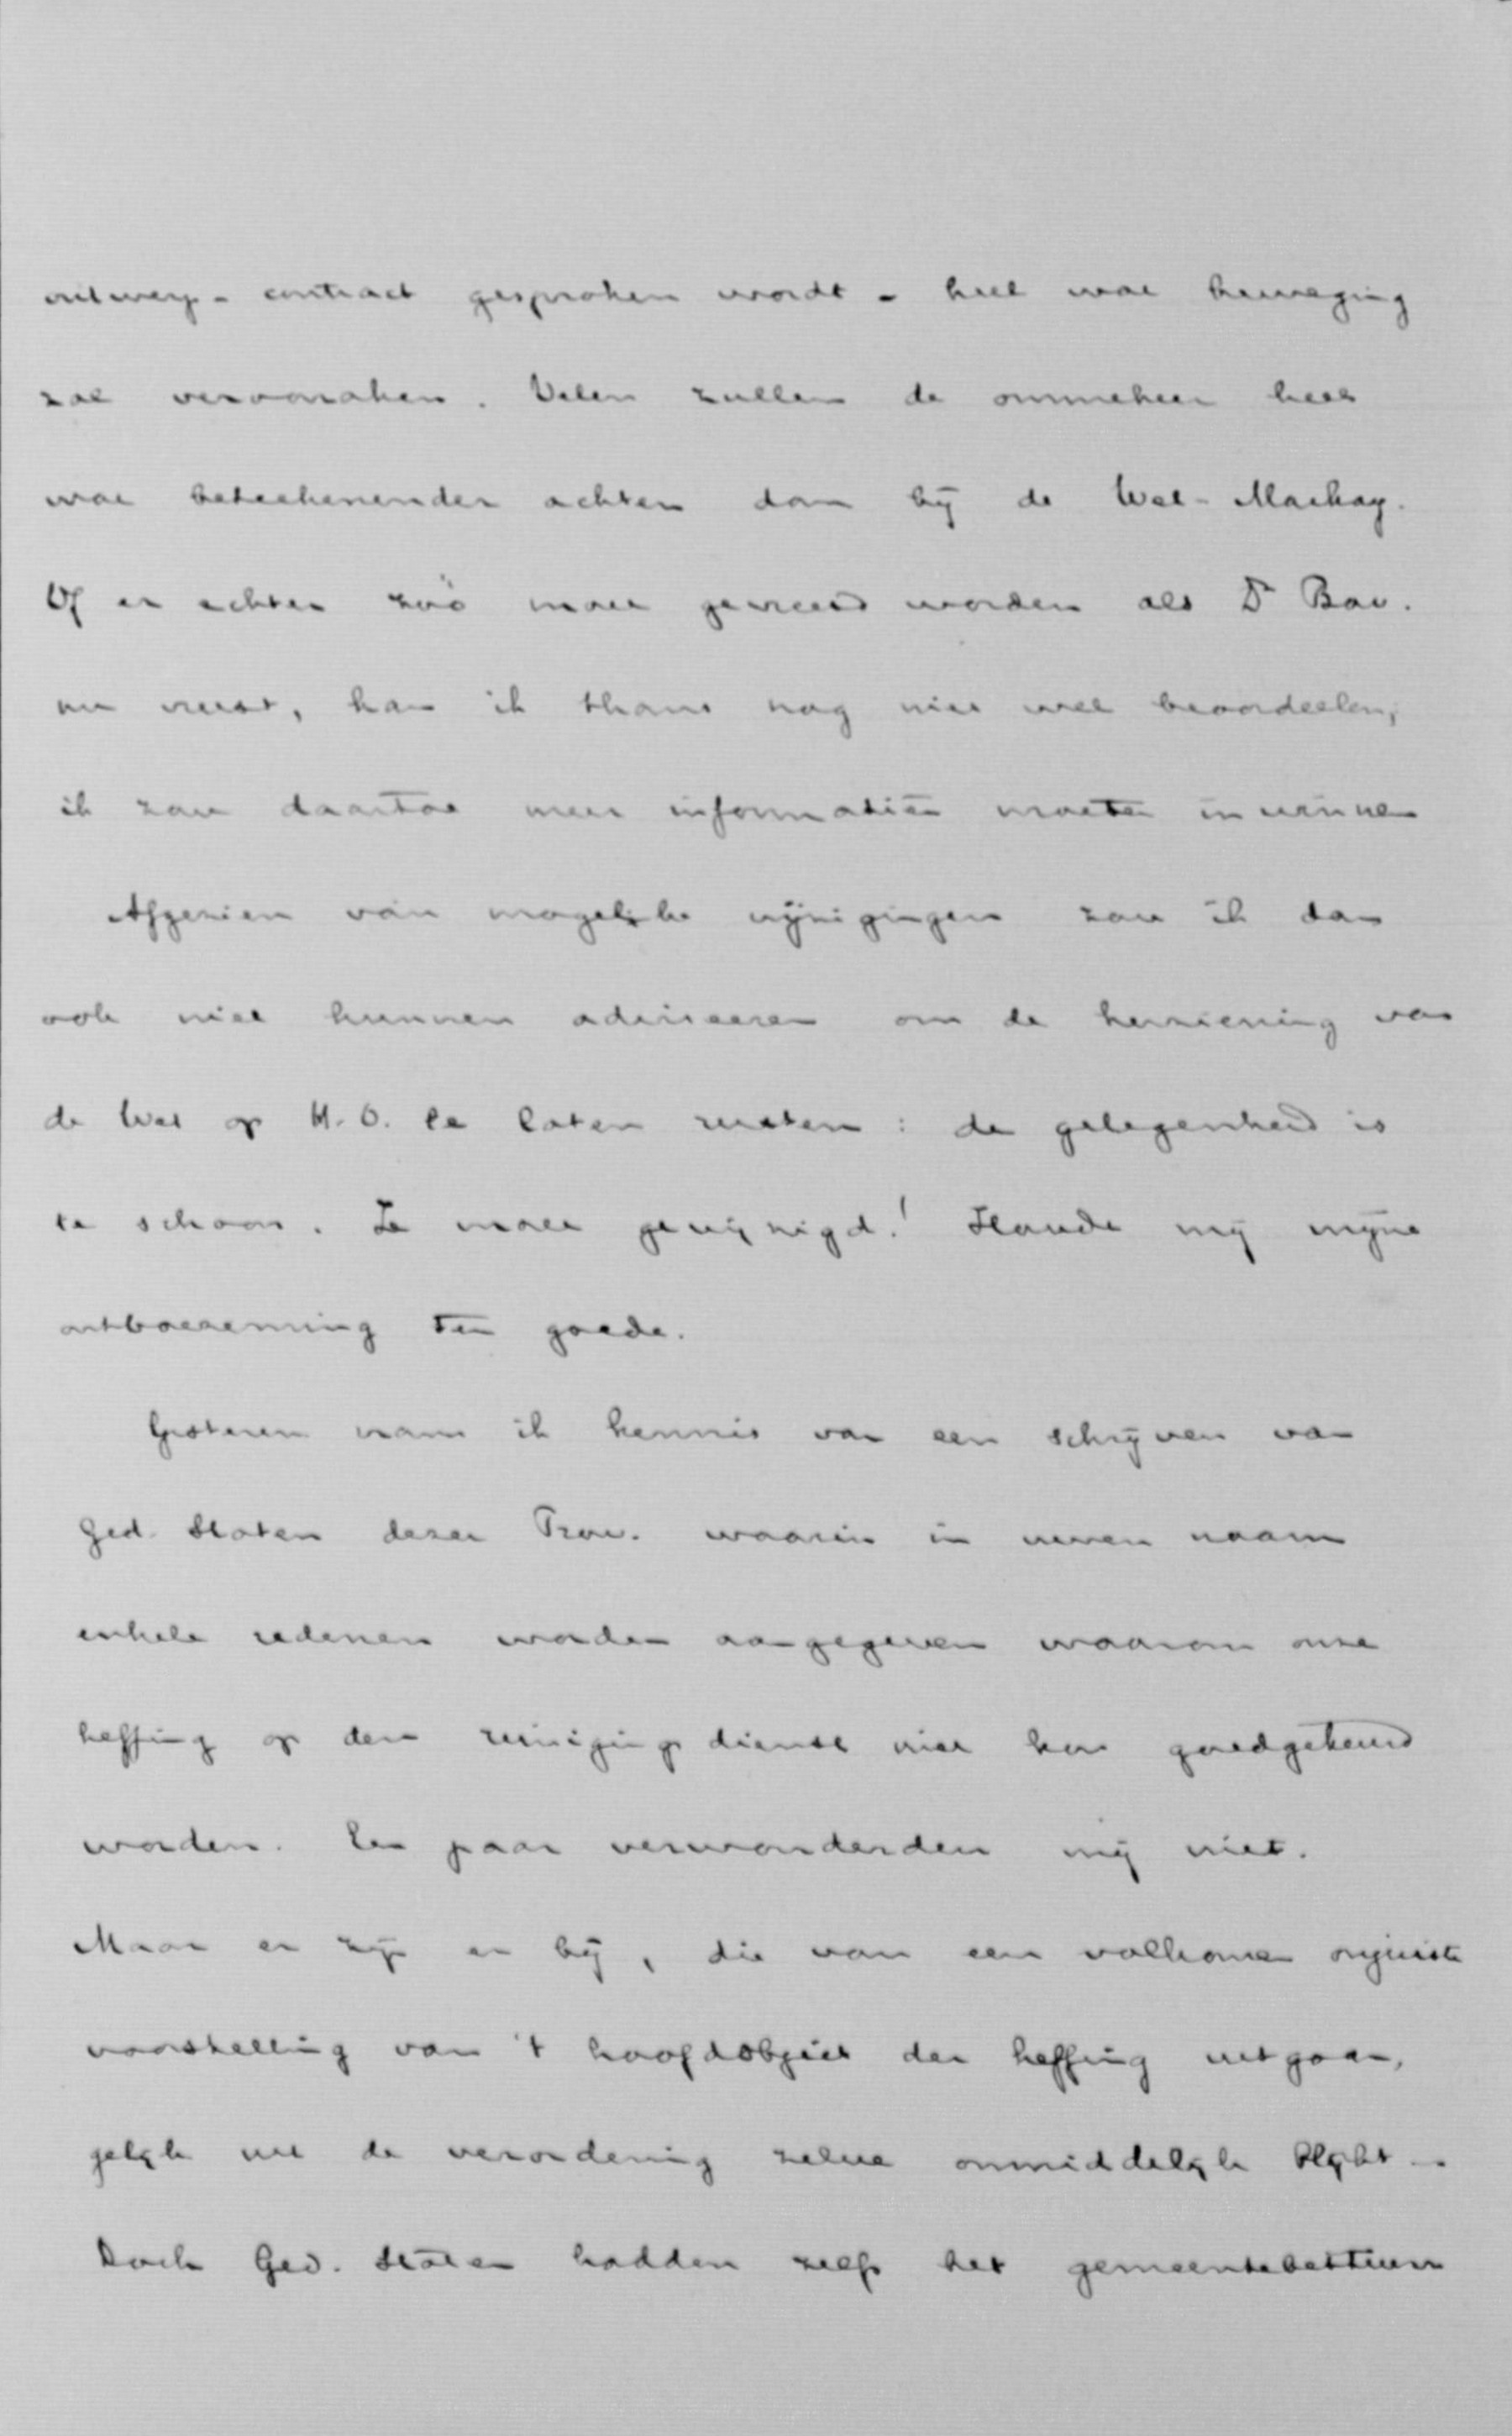 ontwerp-contract gesproken wordt - heel wat beweging
zal veroorzaken. Velen zullen de ommekeer heel
wat beteekenender achten dan bij de Wet-Mackay.
Of er echter zoó moet gevreesd worden als Dr Bav.
nu vreest, kan ik thans nog niet wel beoordeelen;
ik zou daartoe meer informatiën moeten inwinnen
Afgezien van mogelijke wijzigingen zou ik dan
ook niet kunnen adviseeren om de herziening van
de Wet op H.O. te laten rusten: de gelegenheid is
te schoon. Ze moet gewijzigd! Houde mij mijne
ontboezeming ten goede.
Gisteren nam ik kennis van een schrijven van
Ged. Staten dezer Prov. waarin in uwen naam
enkele redenen worden aangegeven waarom onze
heffing op den reinigingsdienst niet kon goedgekeurd
worden. Een paar verwonderden mij niet.
Maar er zijn er bij, die van een volkomen onjuiste
voorstelling van 't hoofdobject der heffing uitgaan,
gelijk uit de verordening zelve onmiddelijk blijkt -
Doch Ged. Staten hadden zelfs het gemeentebestuur